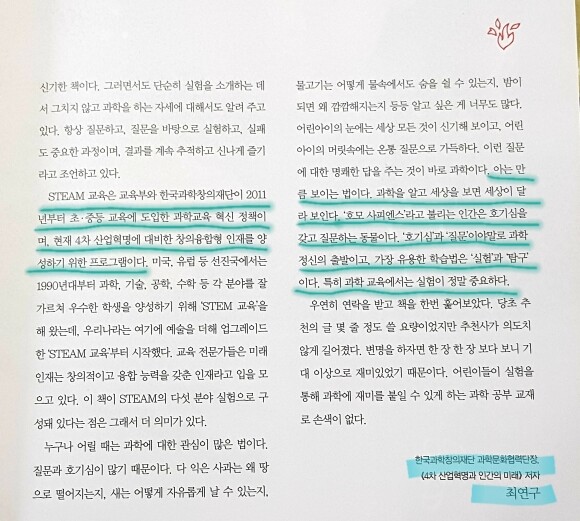 신기한 책이다. 그러면서도 단순히 실험을 소개하는 데
서 그치지 않고 과학을 하는 자세에 대해서도 알려 주고
있다. 항상 질문하고, 질문을 바탕으로 실험하고, 실패
도 중요한 과정이며, 결과를 계속 추적하고 신나게 즐기
라고 조언하고 있다.
STEAM 교육은 교육부와 한국과학창의재단이 2011
년부터 초·중등 교육에 도입한 과학교육 혁신 정책이
며, 현재 4차 산업혁명에 대비한 창의융합형 인재를 양
성하기 위한 프로그램이다. 미국, 유럽 등 선진국에서는
1990년대부터 과학, 기술, 공학, 수학 등 각 분야를 잘
가르쳐 우수한 학생을 양성하기 위해 'STEM 교육'을
해 왔는데, 우리나라는 여기에 예술을 더해 업그레이드
한 'STEAM 교육'부터 시작했다. 교육 전문가들은 미래
인재는 창의적이고 융합 능력을 갖춘 인재라고 입을 모
으고 있다. 이 책이 STEAM의 다섯 분야 실험으로 구
성돼 있다는 점은 그래서 더 의미가 있다.
누구나 어릴 때는 과학에 대한 관심이 많은 법이다.
질문과 호기심이 많기 때문이다. 다 익은 사과는 왜 땅
으로 떨어지는지, 새는 어떻게 자유롭게 날 수 있는지,
물고기는 어떻게 물속에서도 숨을 쉴 수 있는지, 밤이
되면 왜 깜깜해지는지 등등 알고 싶은 게 너무도 많다.
어린아이의 눈에는 세상 모든 것이 신기해 보이고, 어린
아이의 머릿속에는 온통 질문으로 가득하다. 이런 질문
에 대한 명쾌한 답을 주는 것이 바로 과학이다. 아는 만
큼 보이는 법이다. 과학을 알고 세상을 보면 세상이 달
라 보인다. '호모 사피엔스'라고 불리는 인간은 호기심을
갖고 질문하는 동물이다. '호기심'과 '질문'이야말로 과학
정신의 출발이고, 가장 유용한 학습법은 '실험'과 '탐구'
이다. 특히 과학 교육에서는 실험이 정말 중요하다.
우연히 연락을 받고 책을 한번 훑어보았다. 당초 추
천의 글 몇 줄 정도 쓸 요량이었지만 추천사가 의도치
않게 길어졌다. 변명을 하자면 한 장 한 장 보다 보니 기
대 이상으로 재미있었기 때문이다. 어린이들이 실험을
통해 과학에 재미를 붙일 수 있게 하는 과학 공부 교재
로 손색이 없다.
한국과학창의재단 과학문화협력단장,
《4차 산업혁명과 인간의 미래》 저자
최연구